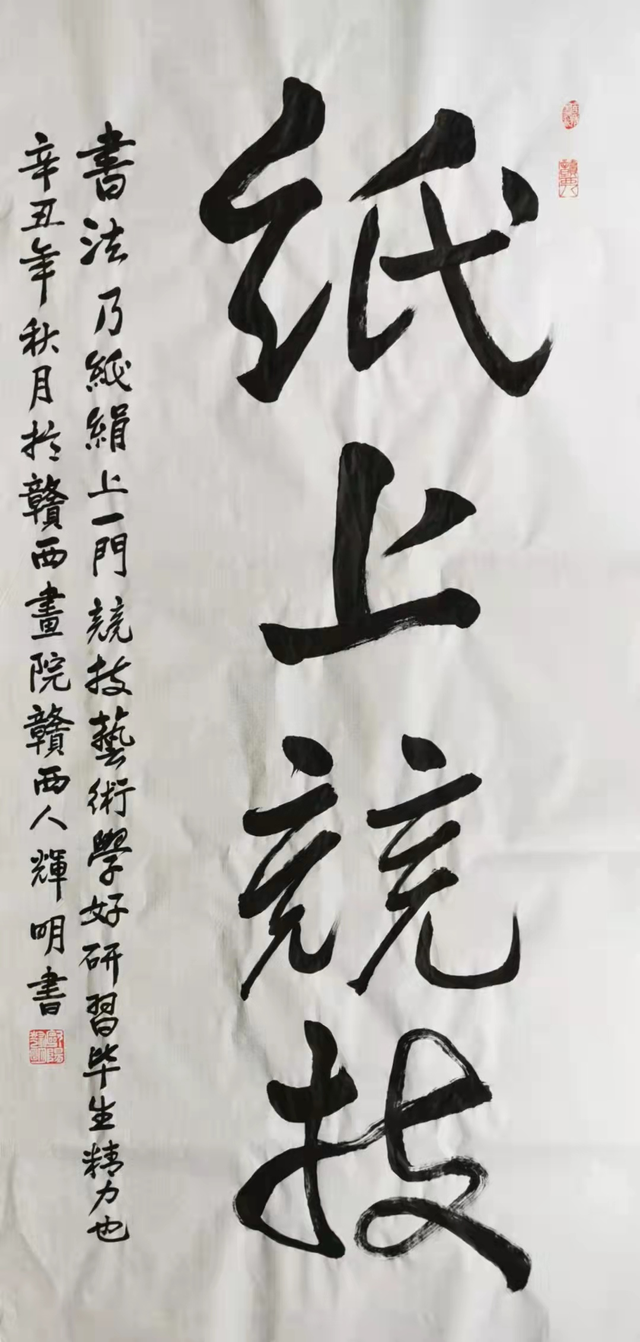 紙上競技
書法乃紙絹上一門競技藝術學好研習毕生精力也
辛丑年秋月於贛西畫院贛西人輝明書